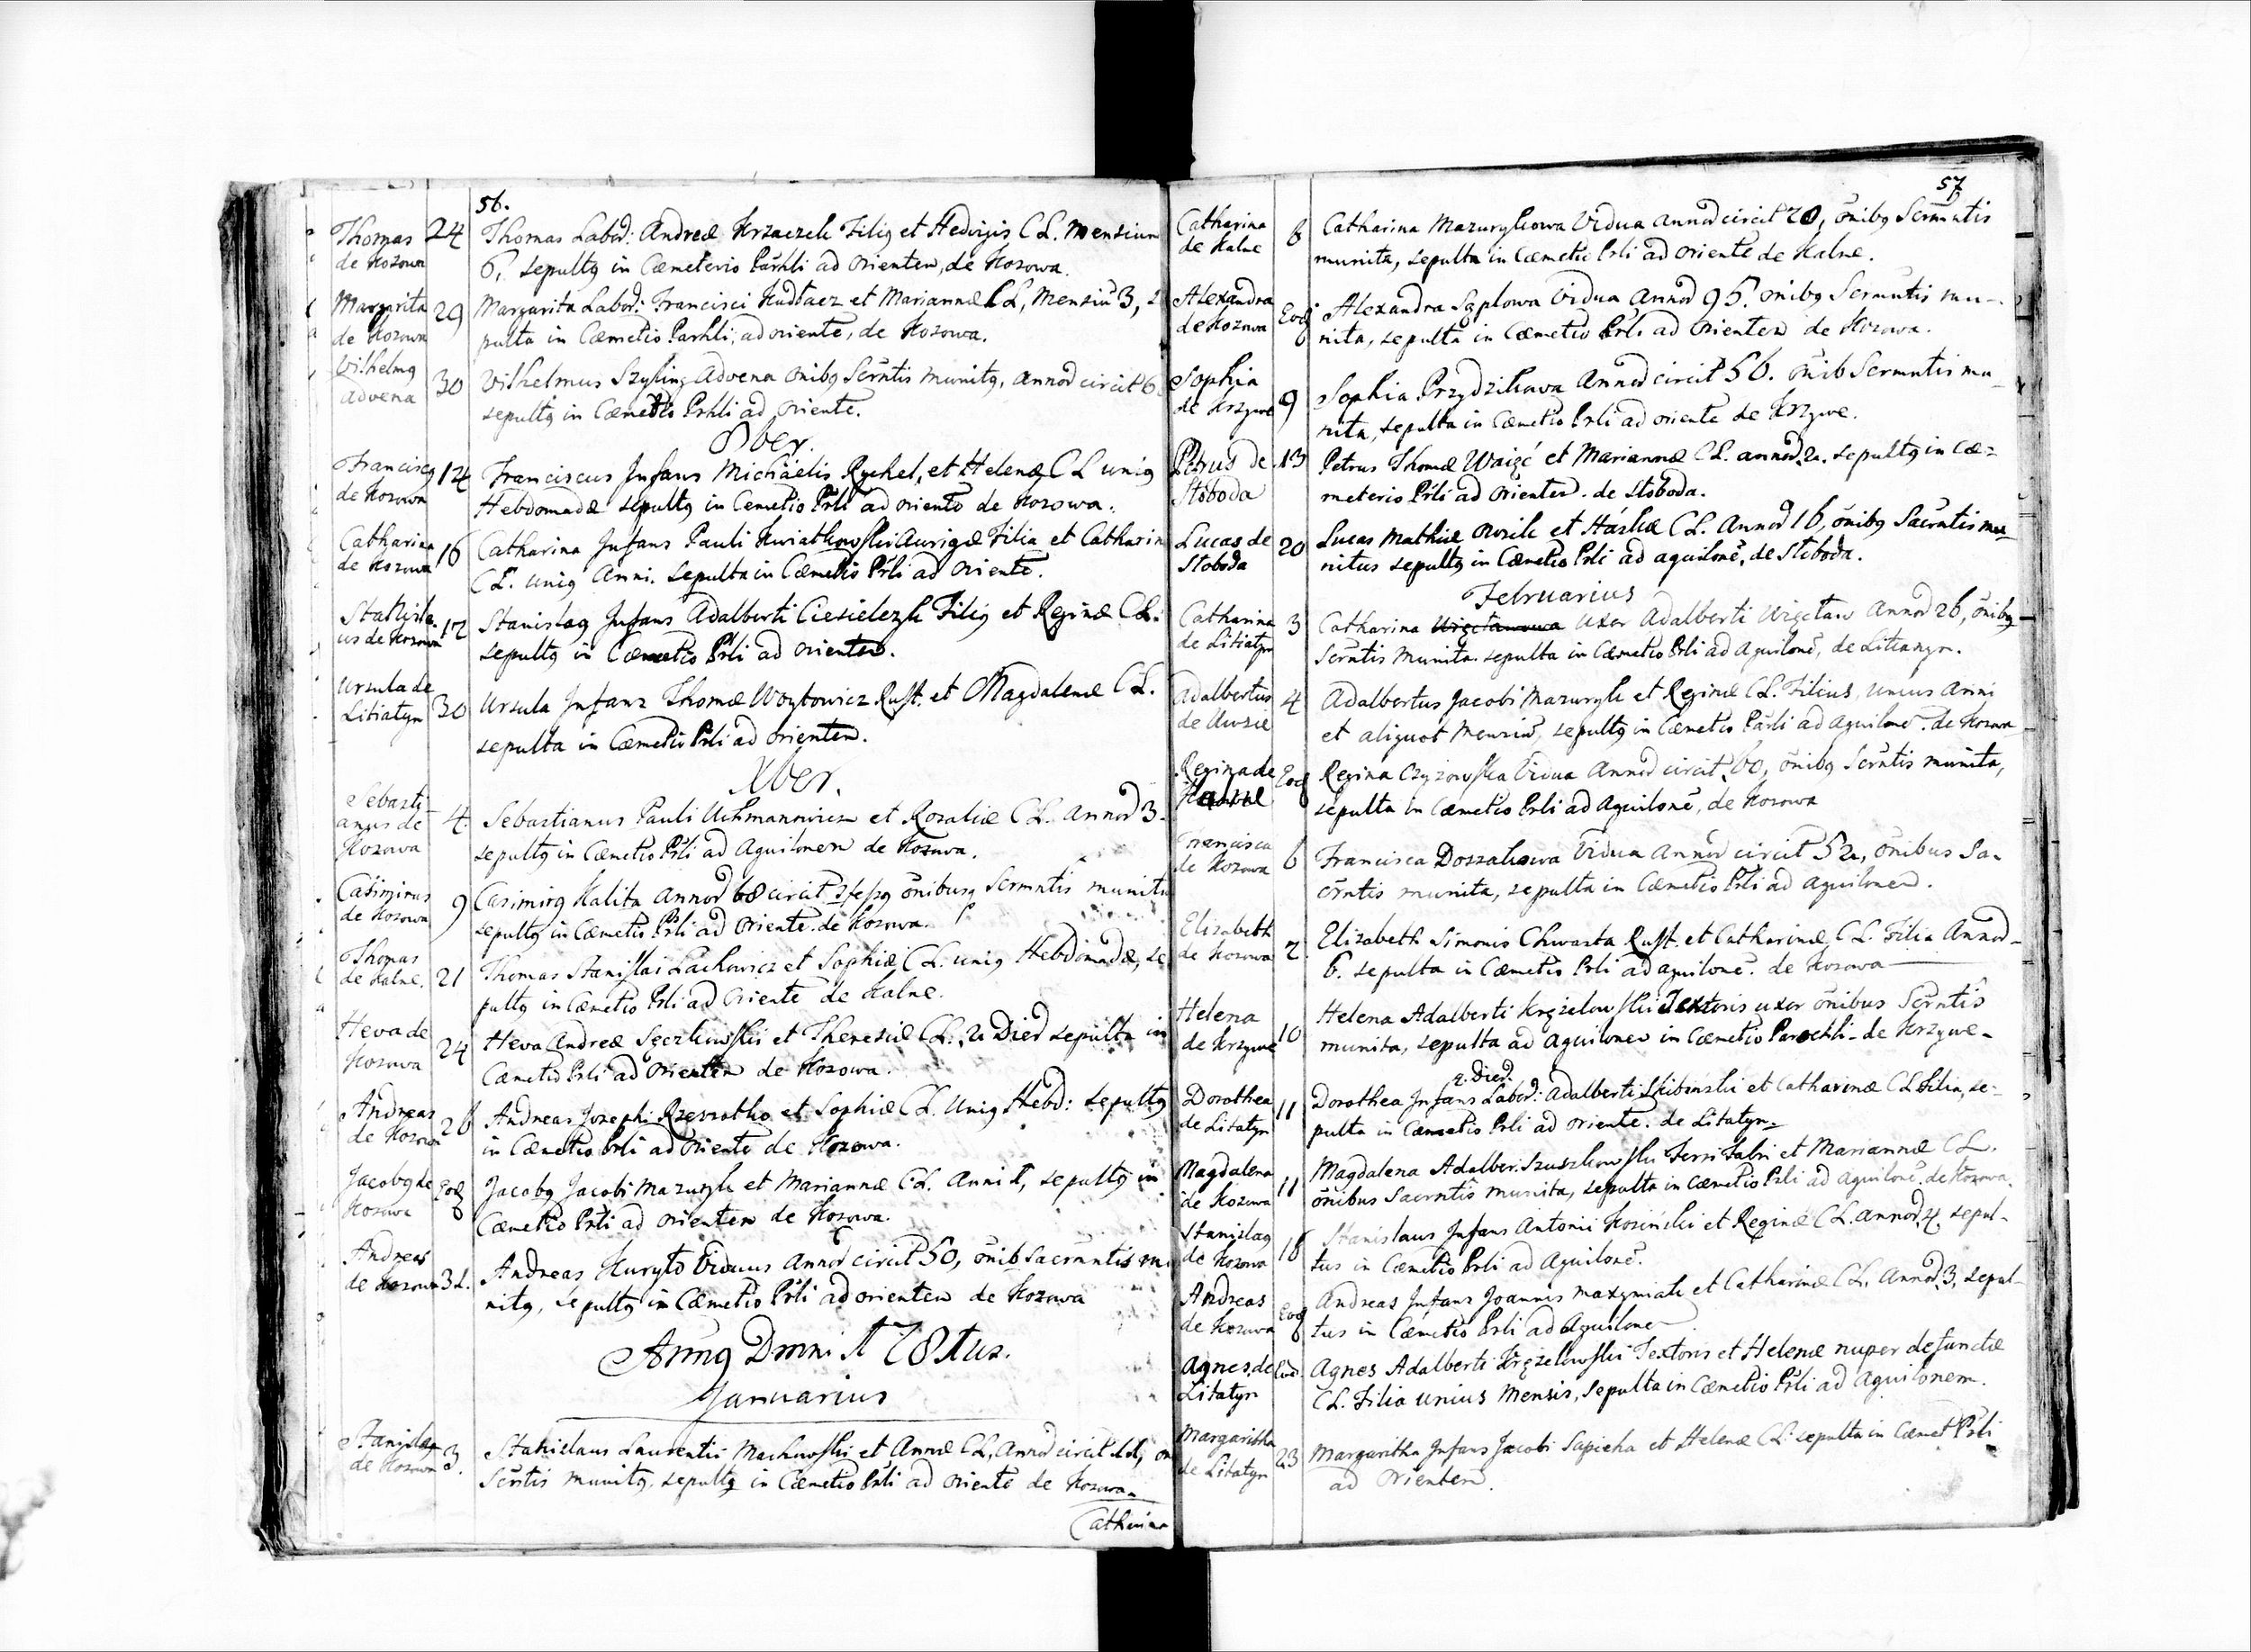 56.
Thomas de Kozowa 24 Thomas Labor: Andreæ Krzaczek Filiq et Hedvigis CL. Mensium
6, sepultq in Cæmeterio Parhli ad Orientem, de Kozowa.
Margarita de Kozowa 29 Margarita Labor: Francisci et Mariannæ CL, Mensiū 3,
pulta in Cæmetio Parhli, ad oriente, de Kozowa.
Vilhelmq Advena 30 Vilhelmus Szyling Advena onibq Scrntis munitq, Annor circit 6
sepultq in Cæmetio Prhli ad oriente.
9ber.
Franciscq de Kozowa 14 Franciscus Jnfans Michaelis Rychel, et Helenæ CL uniq
Hebdomadæ sepultq in Cemetio Prli ad oriente de Kozowa.
Catharina de Kozowa 16 Catharina Jnfans Pauli Kwiatkowski Aurigæ Filia et Catharin
CL. uniq Anni. Sepulta in Cæmetio Prli ad Oriente.
de Kozowa 17 Stanislaq Jnfans Adalberti Ciesielczyk Filiq et Reginæ CL.
sepultq in Cæmetio Prli ad Orientem.
Ursula de Litiatyn 30 Ursula Jnfans Thomæ Woytowicz Rust. et Magdalenæ CL.
sepulta in Cæmetio Prli ad Orientem.
Xber.
Sebastianus de Kozowa 4. Sebastianus Pauli Uchmanowicz et Rozaliæ CL. Annor 3.
sepultq in Cæmetio Prli ad Aquilonem de Kozowa.
Casimirus de Kozowa 9 Casimirq Kalita Annor 68 circit onibusq Scrmntis munitu
sepultq in Cæmetio Prli ad Oriente de Kozowa.
Thomas de Kalne. 21 Thomas Stanislai Lachowicz et Sophiæ CL. uniq Hebdomadæ, se
pultq in Cæmetio Prli ad Oriente de Kalne.
Heva de Kozowa 24 Heva Andreæ Sęczkowski et Theresiæ CL. 2 Dier sepulta in
Cæmetio Prli ad Orientem de Kozowa.
Andreas de Kozowa 26 Andreas Jozephi Rzeszotko et Sophiæ CL. Uniq Hebd: sepultq
in Cæmetio Prli ad Oriente de Kozowa.
Jacobq de Kozowa Eod Jacobq Jacobi Mazuryk et Mariannæ CL. Anni 1, sepultq in
Cæmetio Prli ad Orientem de Kozowa.
Andreas de Kozowa 31. Andreas Kuryło Viduus Annor circit 50, onib Sacrmntis mu
nitq, sepultq in Cæmetio Prli ad orientem de Kozowa
Annq Dmni 1781us.
Januarius
Stanislaq de Kozowa 3. Stanislaus Laurentii Machnowski et Annæ CL, Annor circit on
Scrntis munitq, sepultq in Cæmetio Prli ad Oriente de Kozowa
Catharina
57
Catharina de Kalne 8 Catharina Mazurykowa Vidua annor circit 70, onibq Scrmntis
munita, sepulta in Cæmetio Prli ad Oriente de Kalne.
Alexandra de Kozowa Eod Alexandra Sąplowa Vidua Annor 95. onibq Scrmntis mu-
nita, sepulta in Cæmetio Prli ad Orientem de Kozowa.
Sophia de Krzywe 9 Sophia Przydzikowa Annor circit 56. onib Scrmntis mu-
nita, sepulta in Cæmetio Prli ad oriente de Krzywe.
Petrus de Słoboda 13 Petrus Thomæ et Mariannæ CL. annor 2. sepultq in Cæ-
meterio Prli ad Orientem. de Słoboda.
Lucas de Słoboda 20 Lucas Mathiæ et CL. Annor 16, onibq Sacrntis mu
nitus sepultq in Cæmetio Prli ad aquilonē, de Słoboda.
Februarius
Catharina de Litiatyn 3 Catharina Uxor Adalberti Annor 26, onibq
Scrntis Munita. sepulta in Cæmetio Prli ad Aquilonē, de Litiatyn.
Adalbertus de Uwsie 4 Adalbertus Jacobi Mazuryk et Reginæ CL. Filius, unius Anni
et aliquot Mensiū, sepultq in Cæmetio Parli ad Aquilonē. de Kozowa
Regina de Eod Regina Czyżowska Vidua Annor circit 60, onibq Scrntis munita,
sepulta in Cæmetio Prli ad Aquilonē, de Kozowa
Francisca de Kozowa 6 Francisca Doszakowa Vidua Annor circit 52, onibus Sa-
crntis munita, sepulta in Cæmetio Prli ad Aquilonem.
Elizabeth de Kozowa 7. Elizabeth Simonis Chwasta Rust. et Catharinæ CL. Filia Annor
6. sepulta in Cæmetio Prli ad aquilonē. de Kozowa
Helena de Krzywe 10 Helena Adalberti Krężelowski Textoris uxor onibus Scrntis
munita, sepulta ad Aquilonem in Cæmetio Parochli de Krzywe
2. Dier.
Dorothea de Litatyn 11 Dorothea Jnfans Labor: Adalberti Skibinski et Catharinæ CL Filia, se-
pulta in Cæmetio Prli ad Oriente. de Litatyn.
Magdalena de Kozowa 11 Magdalena Adalber. Szuszkowski Ferri Fabri et Mariannæ CL.
onibus Sacrntis munita, sepulta in Cæmetio Prli ad Aquilonē. de Kozowa.
Stanislaq de Kozowa 18 Stanislaus Jnfans Antonii Kosinski et Reginæ CL. annor 4. sepul-
tus in Cæmetio Prli ad Aquilonē.
Andreas de Kozowa Eod Andreas Jnfans Joannis Maxymiak et Catharinæ CL. Annor 3, sepul-
tus in Cæmetio Prli ad Aquilone
Agnes de Litatyn Eod. Agnes Adalberti Krężelowski Textoris et Helenæ nuper defunctæ
CL. Filia unius Mensis, sepulta in Cæmetio Prli ad Aquilonem.
Margaritha de Litatyn 23 Margaritha Jnfans Jacobi Sapieha et Helenæ CL. sepulta in Cæmet Prli
ad Orientem.